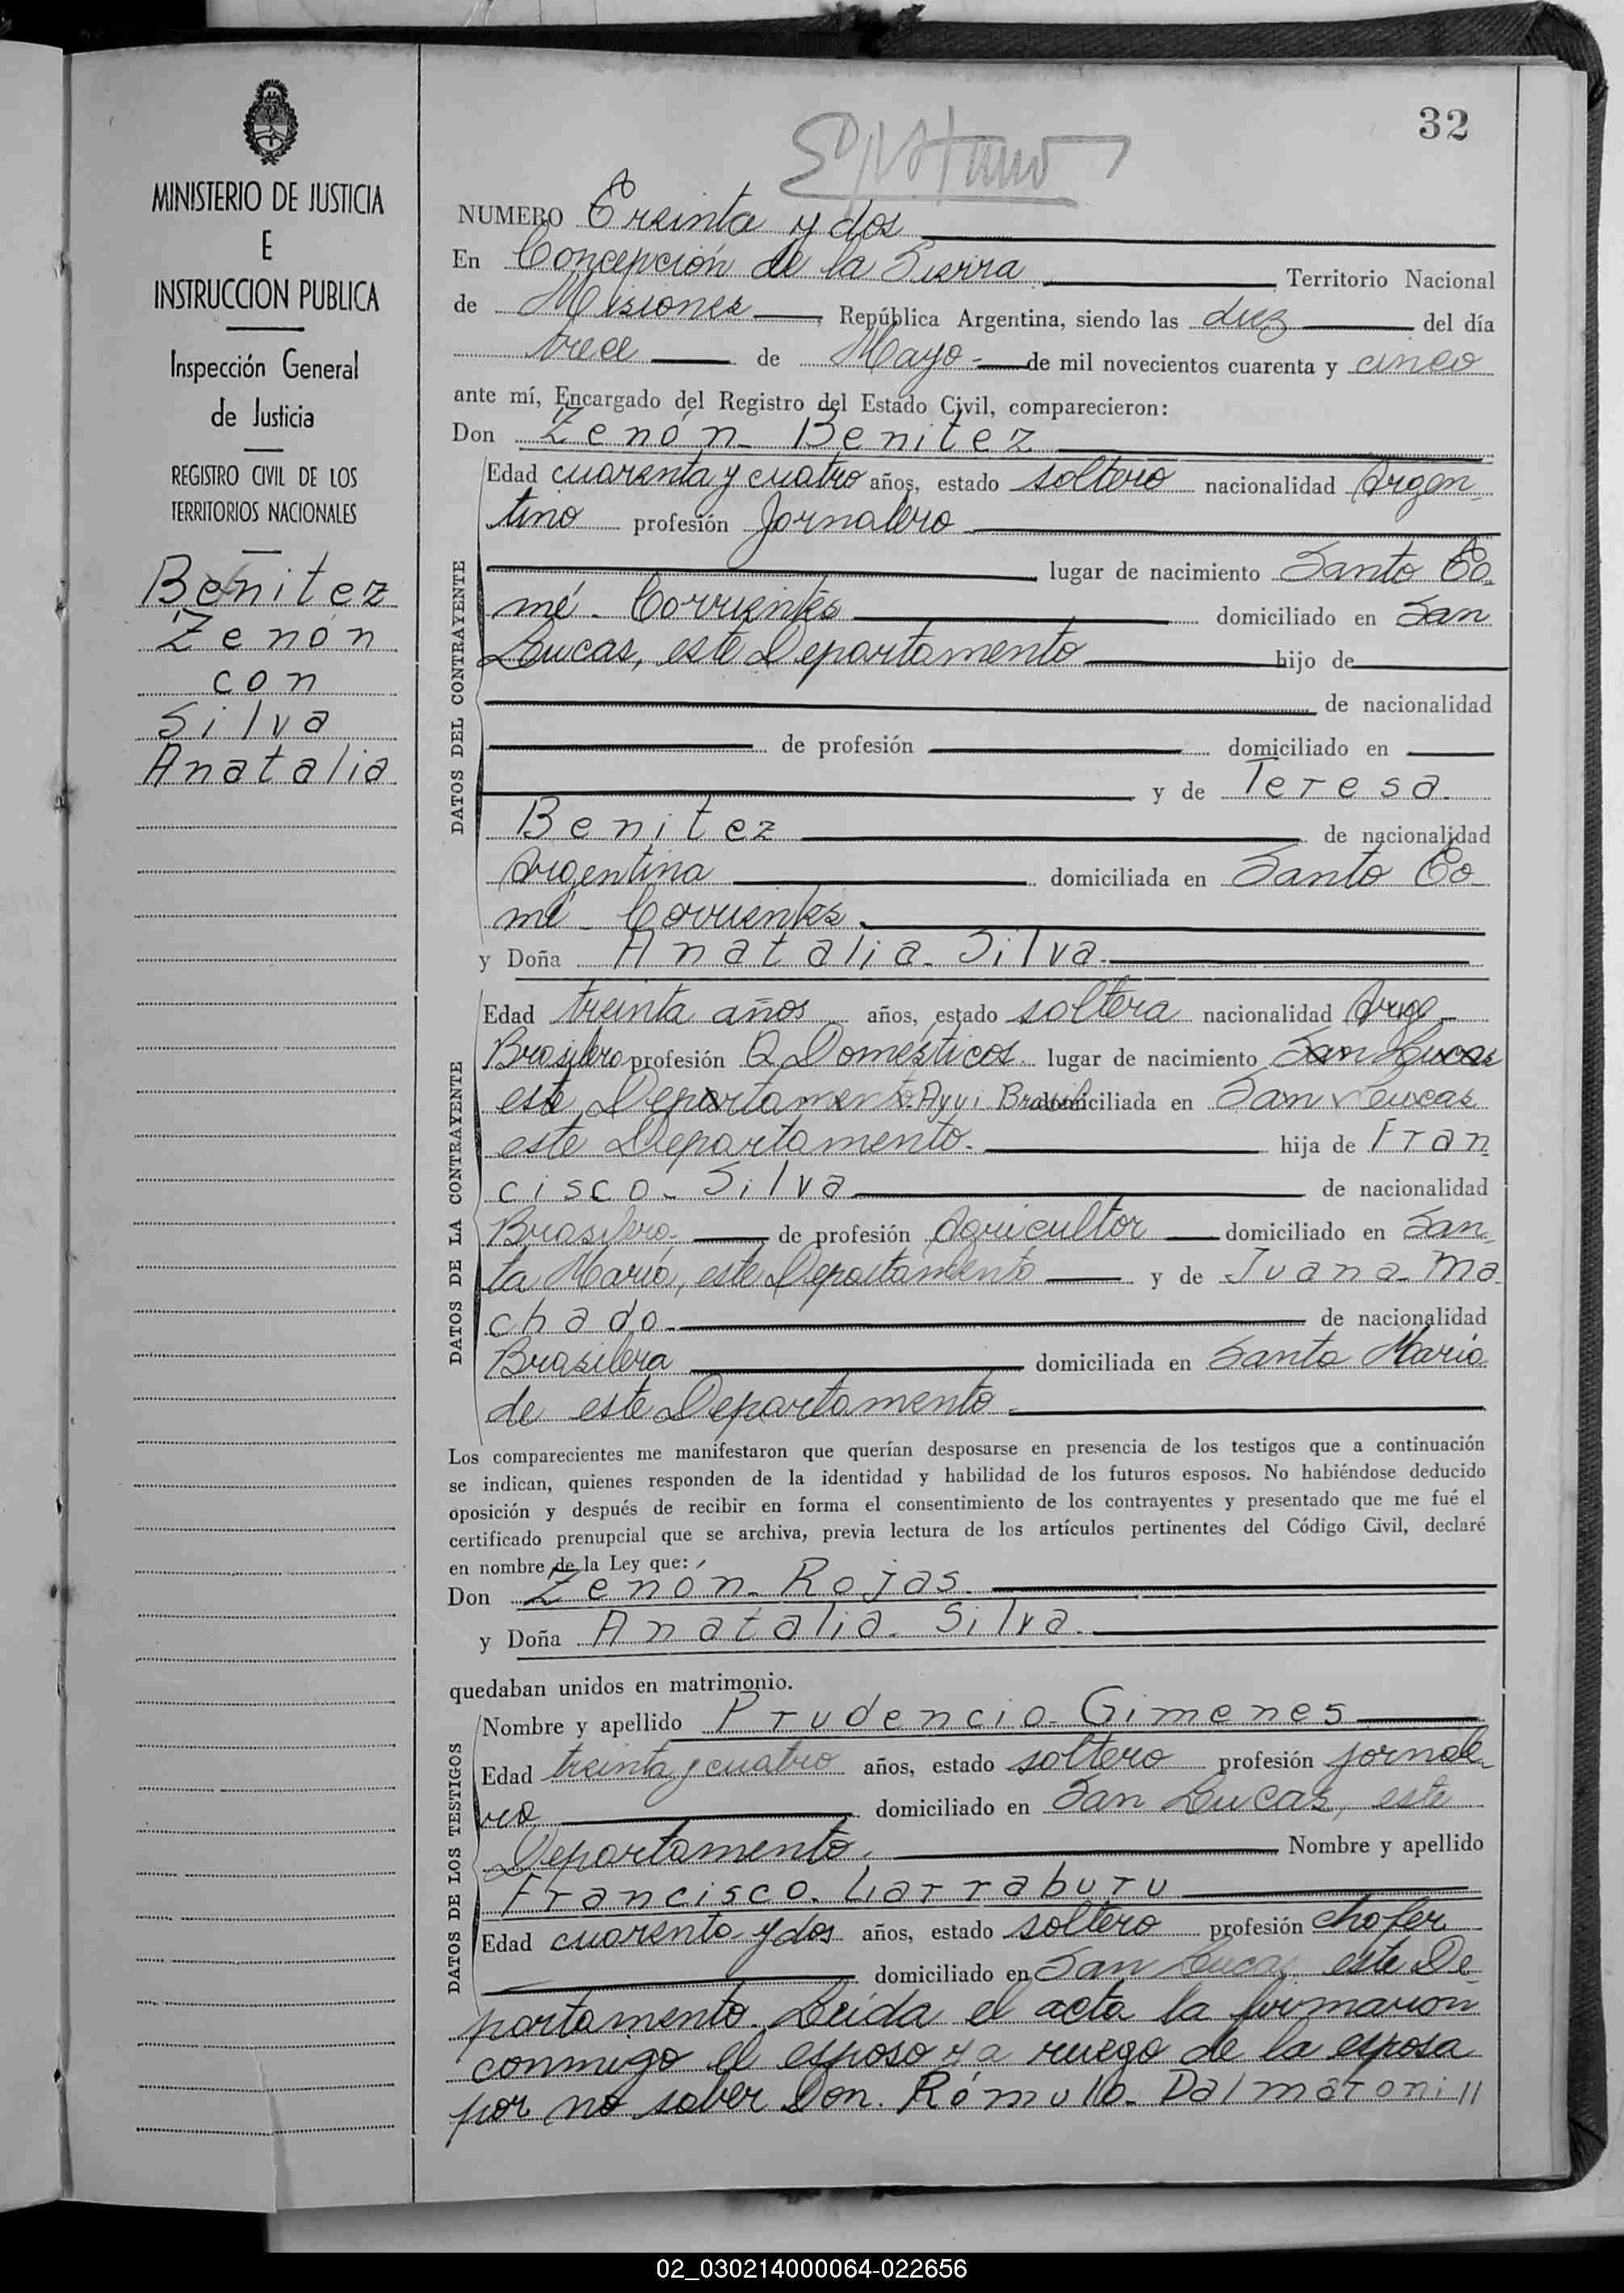 MINISTERIO DE JUSTICIA
E
INSTRUCCION PUBLICA
Inspección General
de Justicia
REGISTRO CIVIL DE LOS
TERRITORIOS NACIONALES
Benitez
Zenón
con
Silva
Anatalia
32
NUMERO Treinta y dos
En Concepción de la Sierra Territorio Nacional
de Misiones, República Argentina, siendo las diez del día
trece de Mayo de mil novecientos cuarenta y cinco
ante mí, Encargado del Registro del Estado Civil, comparecieron:
Don Zenón Benitez
DATOS DEL CONTRAYENTE
Edad cuarenta y cuatro años, estado soltero nacionalidad Argen-
tino profesión Jornalero
lugar de nacimiento Santo To-
mé - Corrientes domiciliado en San
Lucas, este Departamento hijo de
de nacionalidad
de profesión domiciliado en
y de Teresa
Benitez de nacionalidad
Argentina domiciliada en Santo To-
mé - Corrientes.
y Doña Anatalia Silva.
DATOS DE LA CONTRAYENTE
Edad treinta años años, estado soltera nacionalidad
Brasilera profesión Q. Domésticos lugar de nacimiento San Lucas
este Departamento. Ayui Brasil domiciliada en San Lucas
este Departamento. hija de Fran
cisco Silva de nacionalidad
Brasilero. de profesión Agricultor domiciliado en San-
ta María, este Departamento y de Juana Ma
chado de nacionalidad
Brasilera domiciliada en Santa María
de este Departamento.
Los comparecientes me manifestaron que querían desposarse en presencia de los testigos que a continuación
se indican, quienes responden de la identidad y habilidad de los futuros esposos. No habiéndose deducido
oposición y después de recibir en forma el consentimiento de los contrayentes y presentado que me fué el
certificado prenupcial que se archiva, previa lectura de los artículos pertinentes del Código Civil, declaré
en nombre de la Ley que:
Don Zenón Rojas.
y Doña Anatalia Silva.
quedaban unidos en matrimonio.
DATOS DE LOS TESTIGOS
Nombre y apellido Prudencio Gimenes
Edad treinta y cuatro años, estado soltero profesión jornale-
ro domiciliado en San Lucas, este
Departamento. Nombre y apellido
Francisco Larraburu
Edad cuarenta y dos años, estado soltero profesión chofer
domiciliado en San Lucas este De-
partamento. Leída el acta la firmaron
conmigo el esposo y a ruego de la esposa
por no saber Don. Rómulo Dalmaroni //
02_030214000064-022656